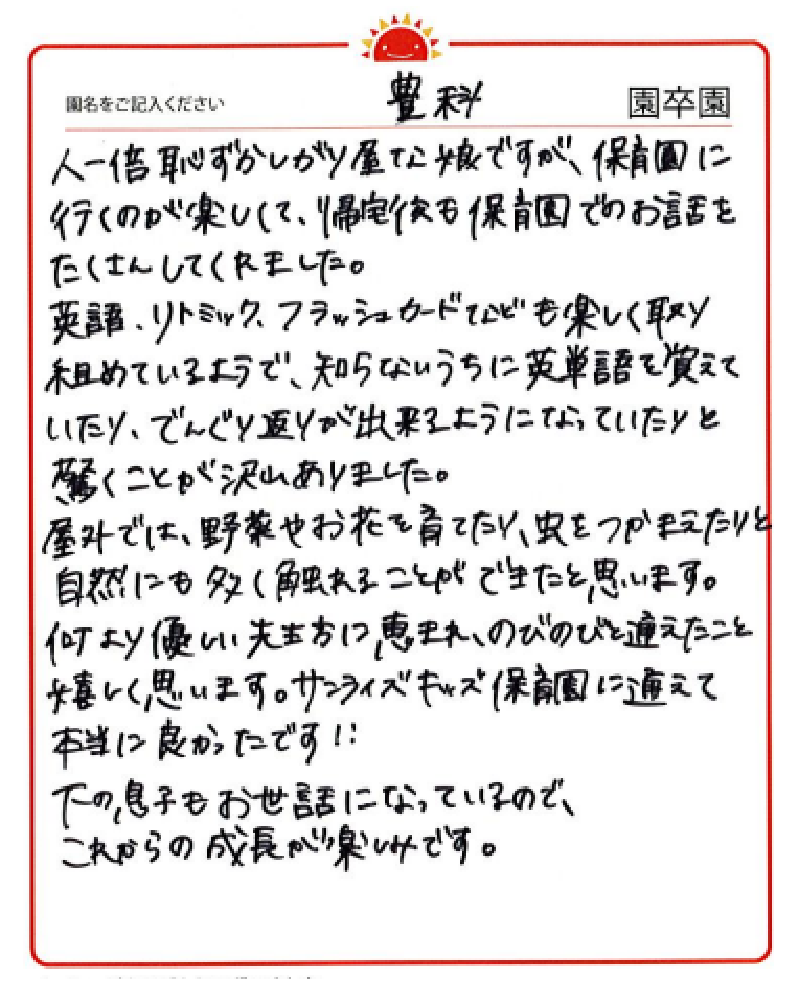 園名をご記入ください 豊科 園卒園
人一倍恥ずかしがり屋な娘ですが、保育園に
行くのが楽しくて、帰宅後も保育園でのお話を
たくさんしてくれました。
英語、リトミック、フラッシュカードなども楽しく取り
組めているようで、知らないうちに英単語を覚えて
いたり、でんぐり返りが出来るようになっていたりと
驚くことが沢山ありました。
屋外では、野菜やお花を育てたり、虫をつかまえたりと
自然にも多く触れることができたと思います。
何より優しい先生方に恵まれ、のびのびと通えたこと
嬉しく思います。サンライズキッズ保育園に通えて
本当に良かったです!!
下の息子もお世話になっているので、
これからの成長が楽しみです。